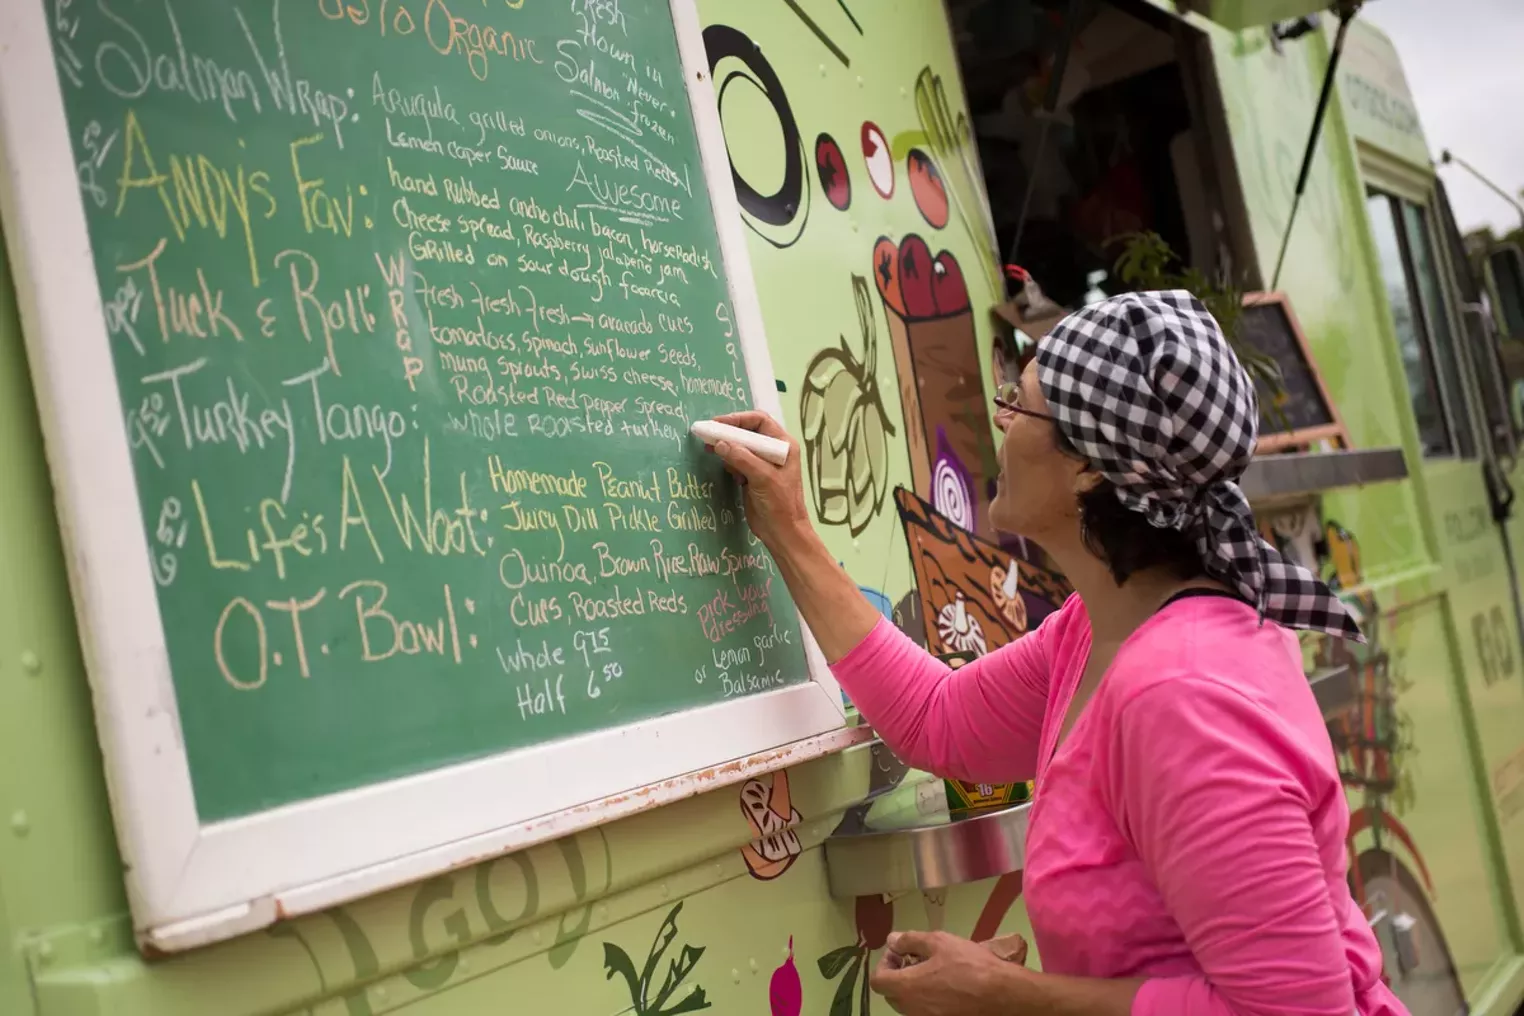 % Organic
Fresh
flown in
Salmon "Never
frozen
Salmon Wrap: Arugula, grilled onions, Roasted Reds
Lemon Caper Sauce
Awesome
Andy's Fav: hand Rubbed ancho chili bacon, horseRadish
Cheese spread, Raspberry jalapeño jam
Grilled on sour dough focaccia
Tuck & Roll: WRaP fresh fresh fresh → avacado cucs
tomatoes, spinach, sunflower seeds,
mung sprouts, swiss cheese, homemade
Roasted Red pepper spread
SaLad
9.50 Turkey Tango: whole roasted turkey
6.50 Life's A Woot: Homemade Peanut Butter
Juicy Dill Pickle Grilled on
O.T. Bowl: Quinoa, Brown Rice, Raw Spinach
Cucs, Roasted Reds
Pick your
dressing
Whole 9.75
Half 6.50
Lemon garlic
or Balsamic
16
GO